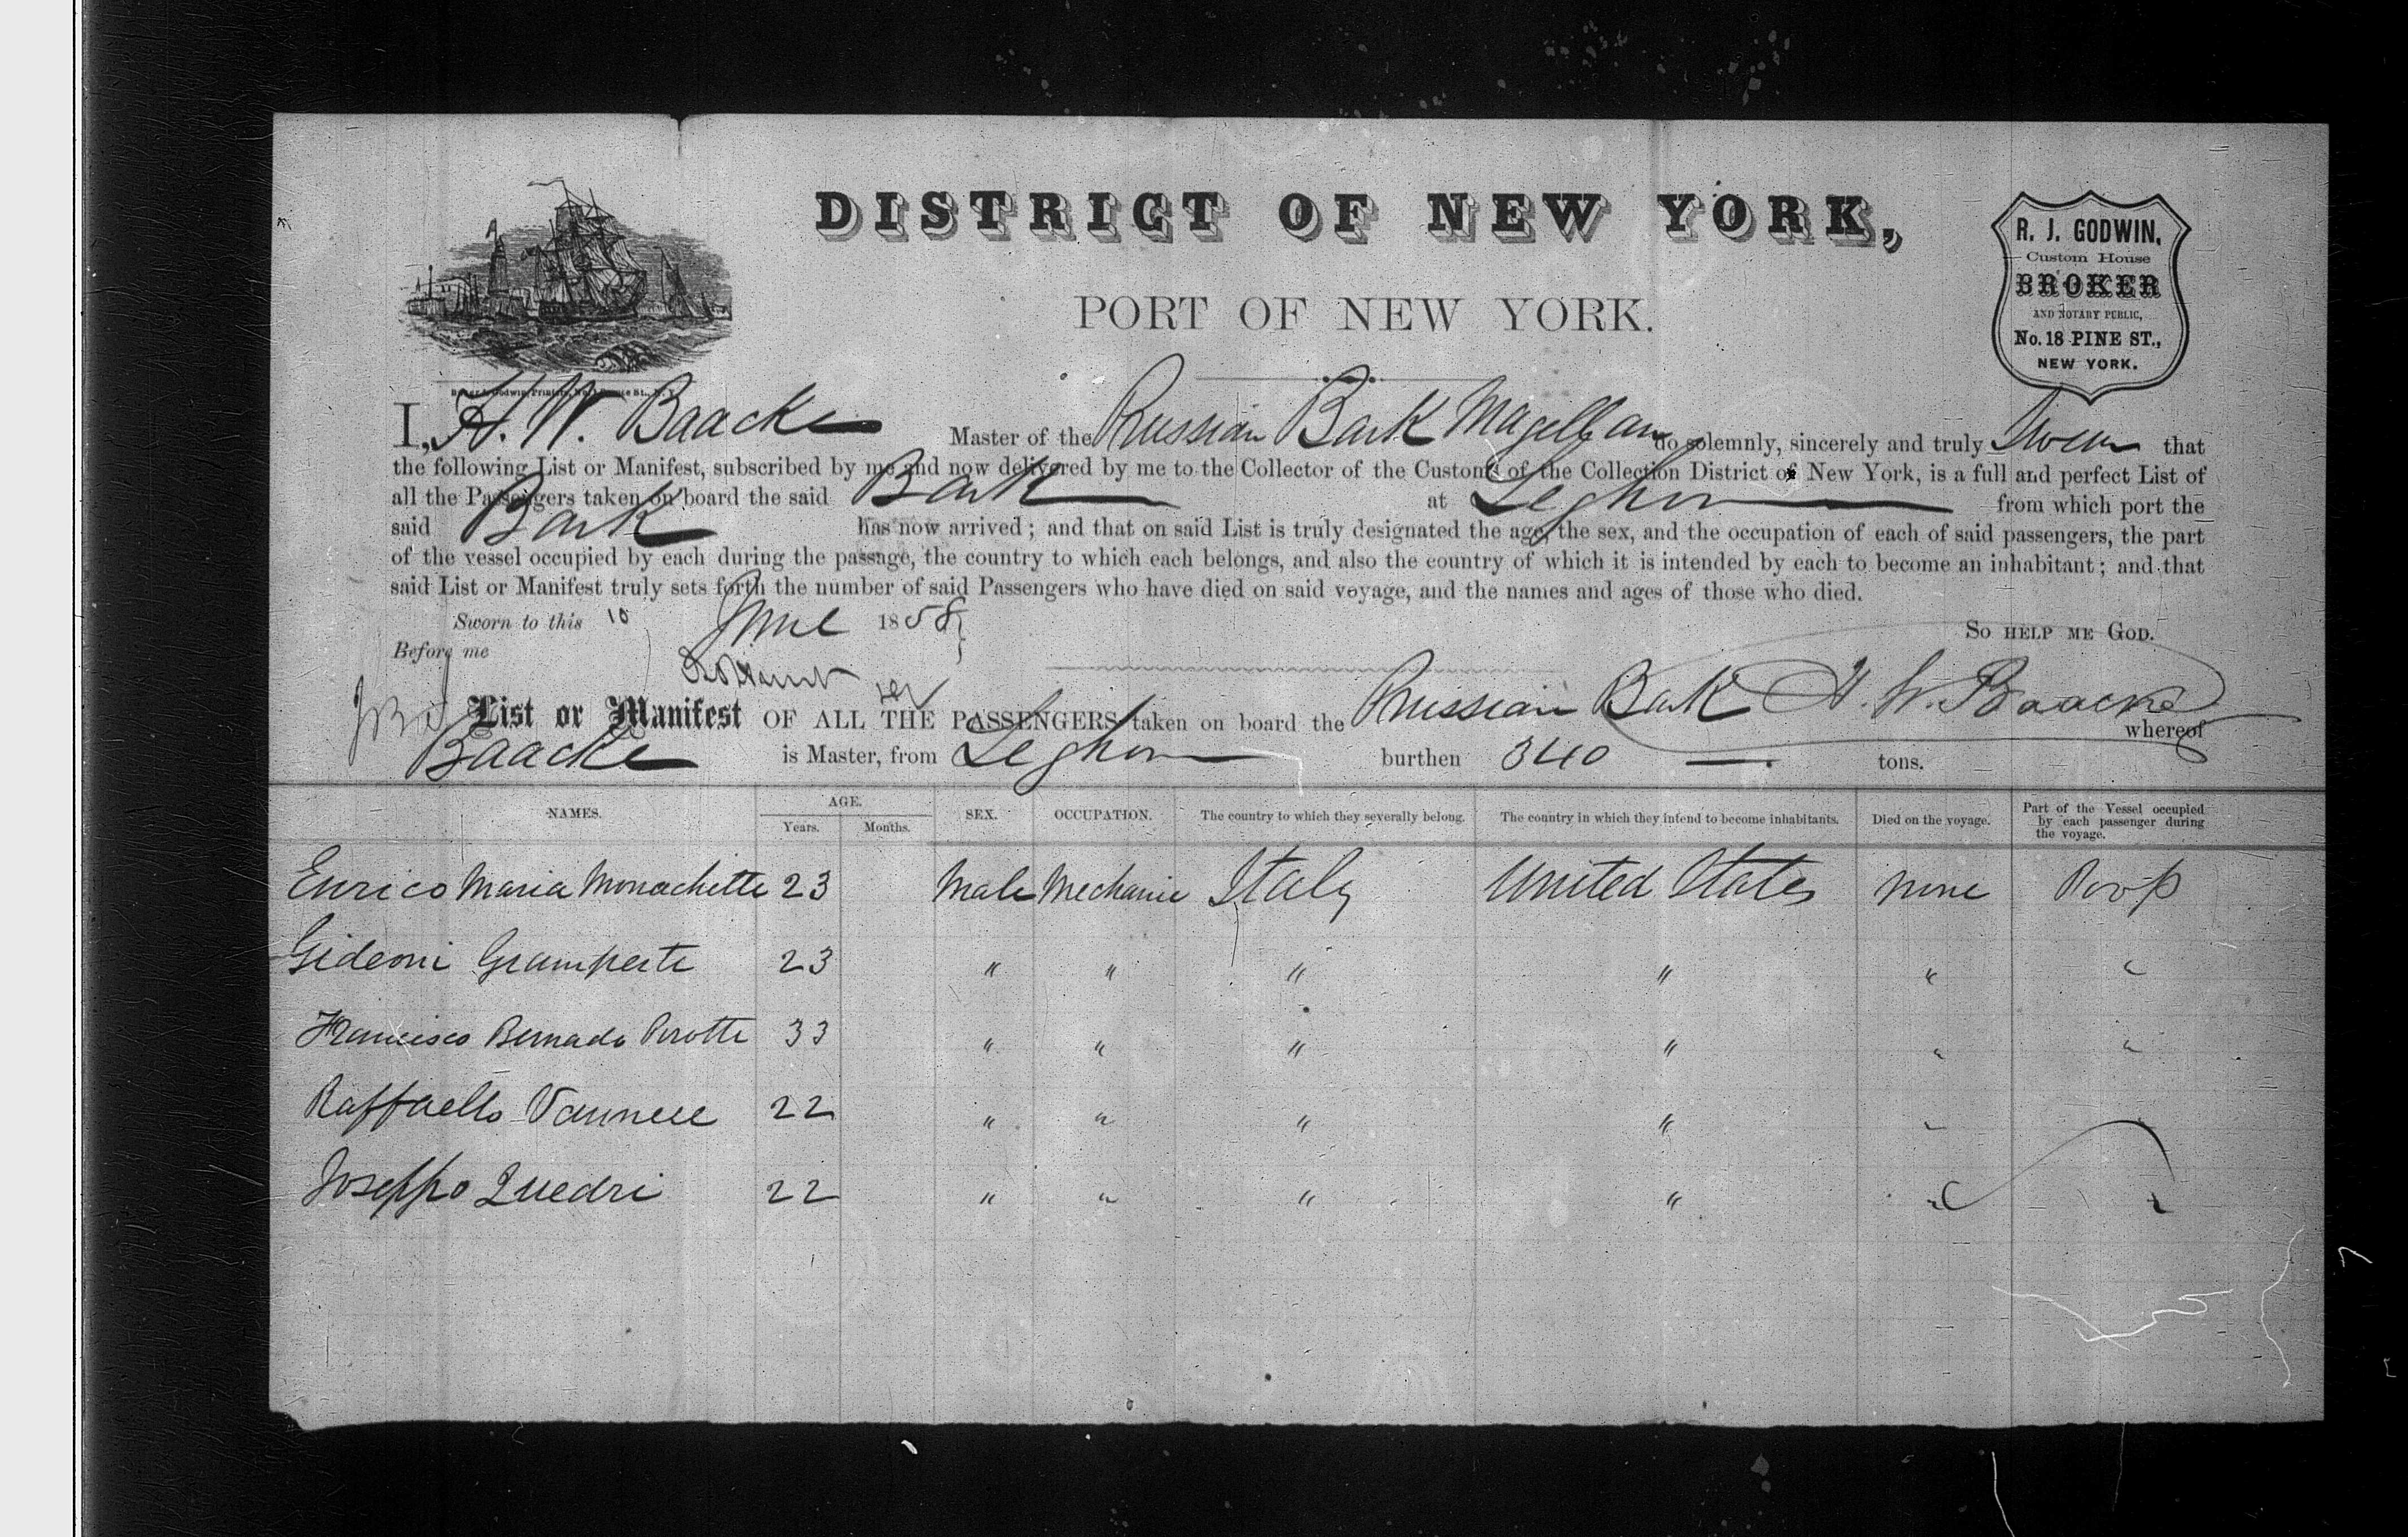 DISTRICT OF NEW YORK,
PORT OF NEW YORK.
R. J. GODWIN,
Custom House
BROKER
AND NOTARY PUBLIC,
No. 18 PINE ST.,
NEW YORK.
I, H. W. Baacke Master of the Russian Bark Magellan do solemnly, sincerely and truly Swear that
the following List or Manifest, subscribed by me and now delivered by me to the Collector of the Customs of the Collection District of New York, is a full and perfect List of
all the Passengers taken on board the said Bark at Leghorn from which port the
said Bark has now arrived; and that on said List is truly designated the age, the sex, and the occupation of each of said passengers, the part
of the vessel occupied by each during the passage, the country to which each belongs, and also the country of which it is intended by each to become an inhabitant; and that
said List or Manifest truly sets forth the number of said Passengers who have died on said voyage, and the names and ages of those who died.
Sworn to this 10 June 1858
So help me God.
Before me
H. W. Baacke
List or Manifest OF ALL THE PASSENGERS taken on board the Russian Bark whereof
Baacke is Master, from Leghorn burthen 340 tons.
NAMES. AGE. Years. Months. SEX. OCCUPATION. The country to which they severally belong. The country in which they intend to become inhabitants. Died on the voyage. Part of the Vessel occupied by each passenger during the voyage.
Enrico Maria Monachette 23 Male Mechanic Italy United States none Poop
Gideoni Gramperte 23 " " " " " "
Francisco Bernado Perotte 33 " " " " " "
Raffaello Vannece 22 " " " " "
Joseppo Quedri 22 " " " " " "